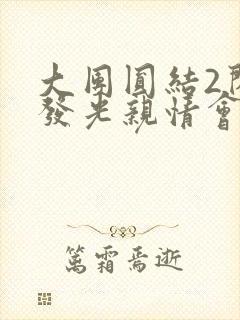 大周圓結2閃
發光親情會
篤霜焉逝